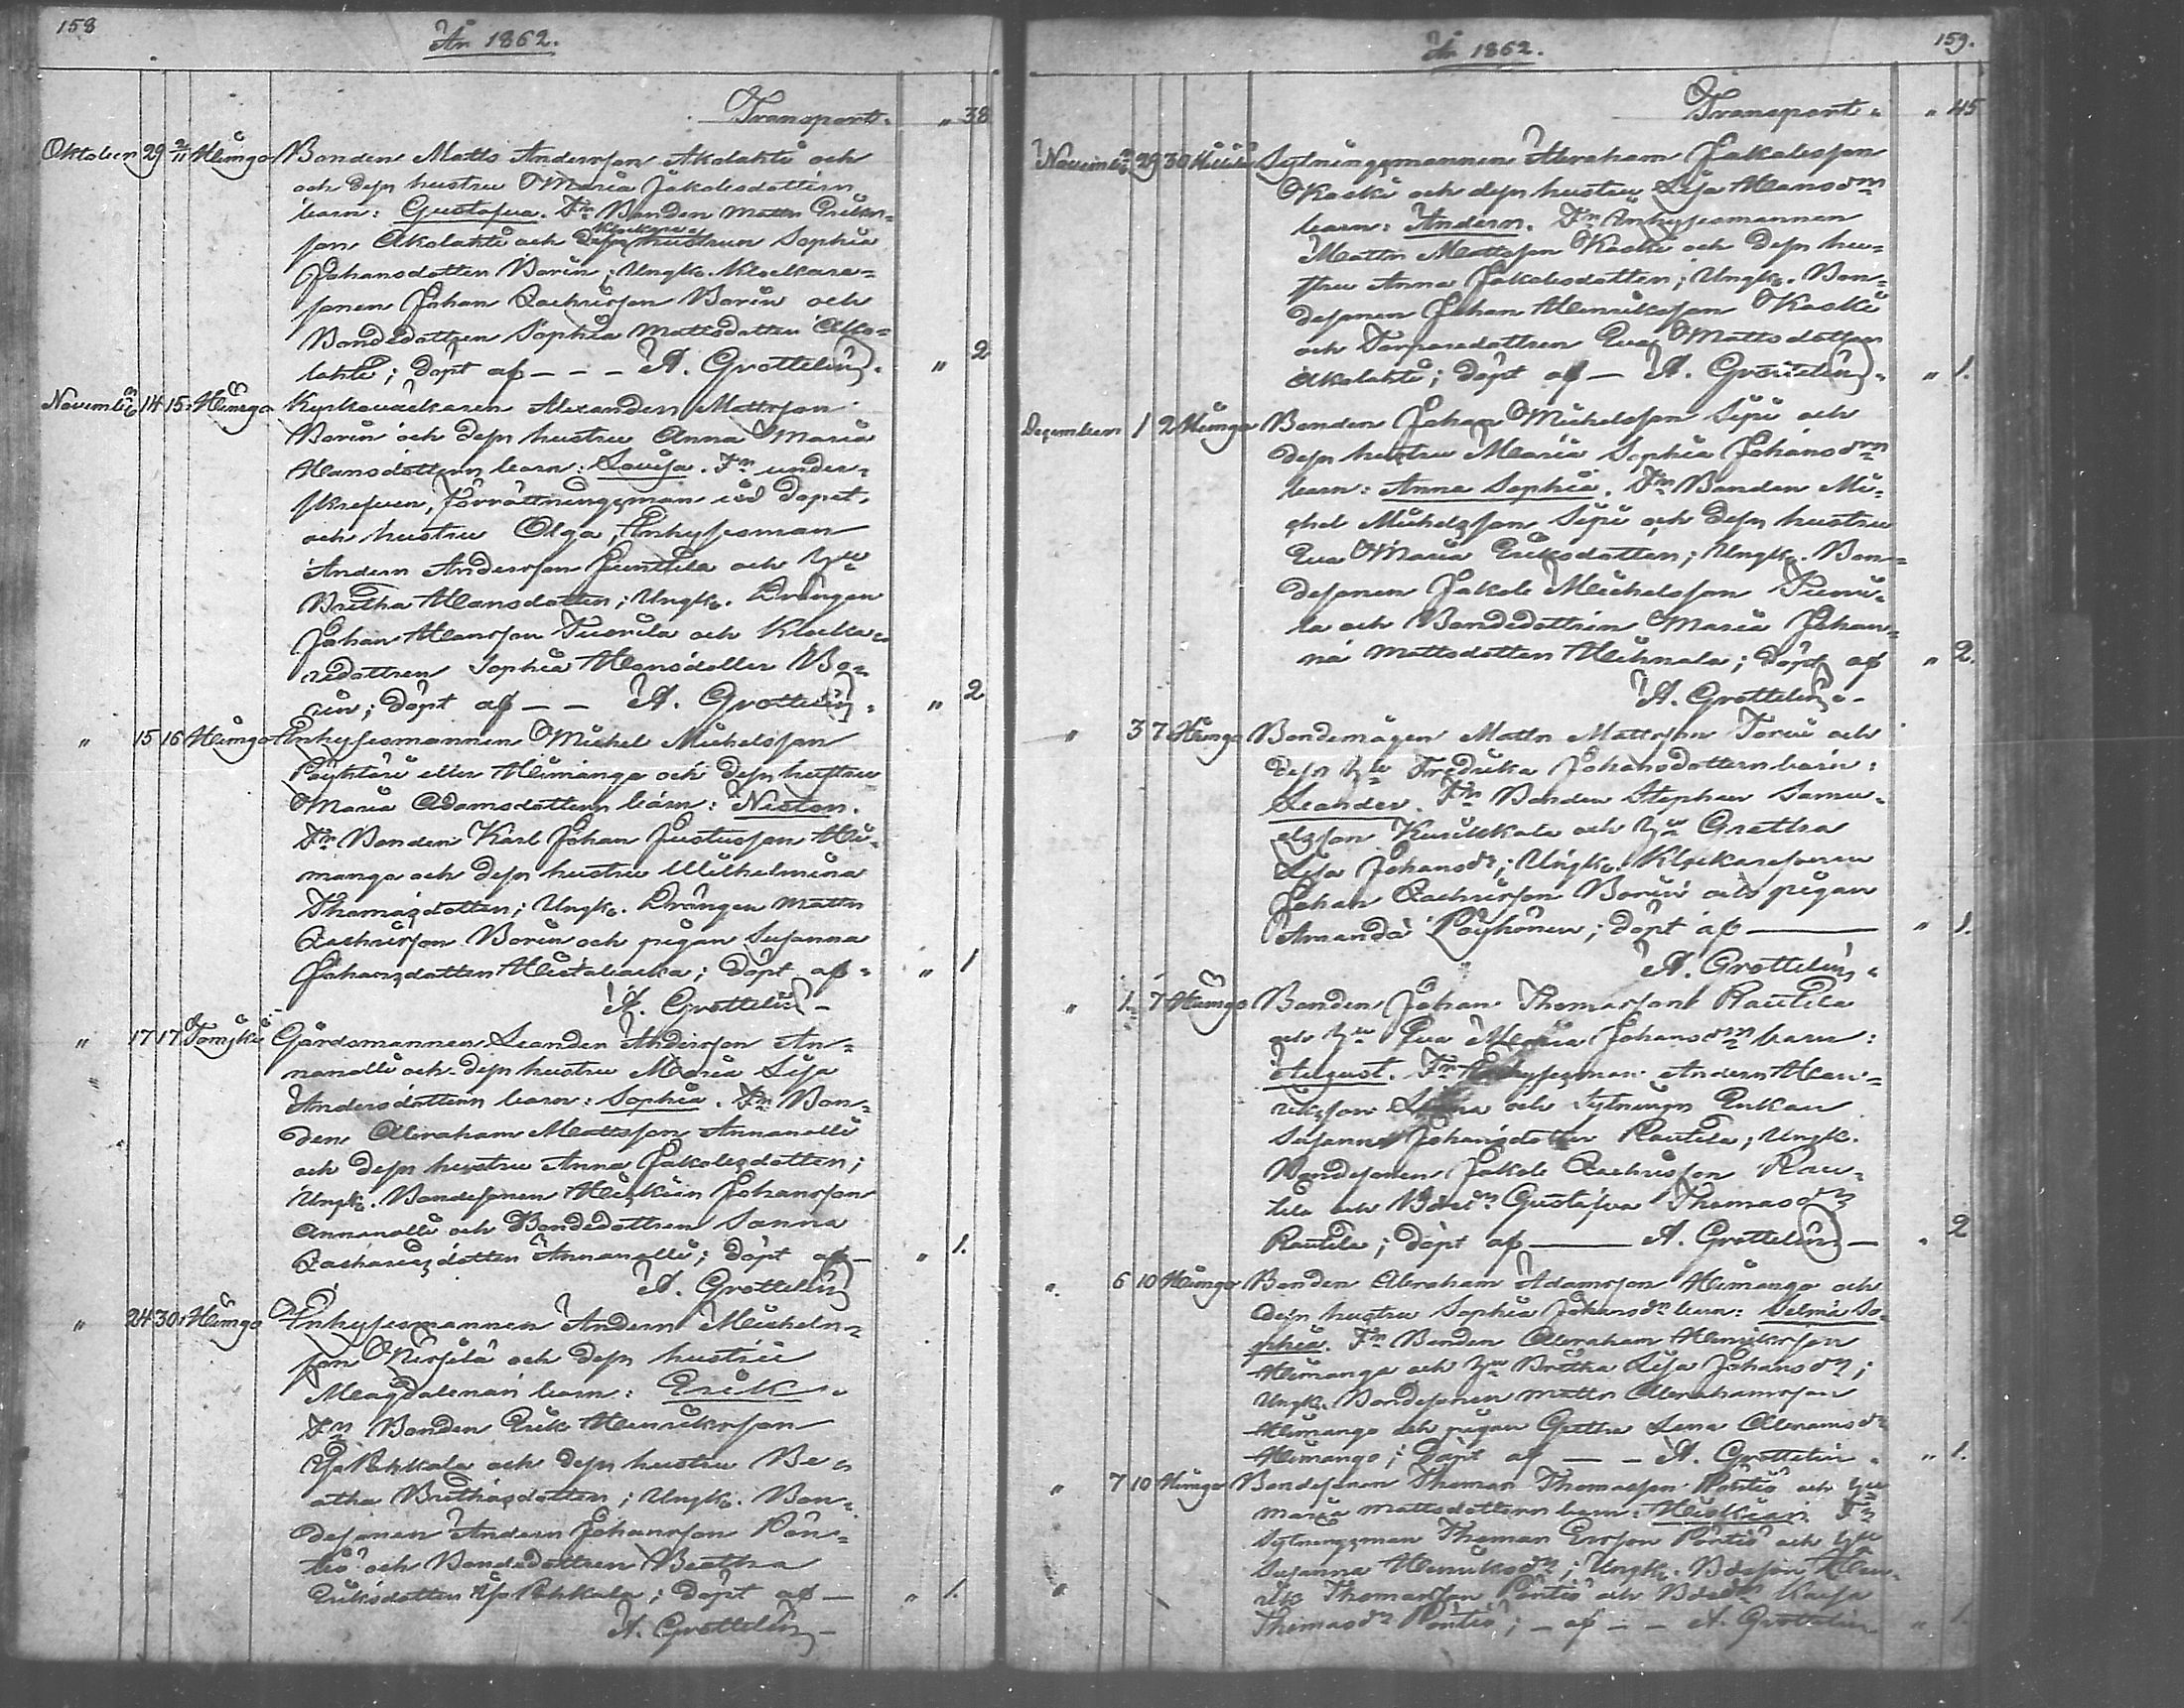 158
År 1862.
Transport. " 38
Oktober 29 2/11 Himgo Bonden Matts Andersson Akolahti och
och dess hustru Maria Jakobsdotters
barn: Gustafva. Fr Bonden Matts Eriks-
son Akolahti och Klockare hustrun Sophia
Johansdotter Borin; Ungk. Klockare-
sonen Johan Zachrisson Borin och
Bondedottren Sophia Mattsdotter Ako-
lahti; döpt af - - - A. Grottelin. " 2
November 14 15 Himgo Kyrkoväktaren Alexander Mattsson
Borin och dess hustru Anna Maria
Hansdotters barn: Lovisa. Fr under-
skrefven, Förrättningsman vid dopet,
och hustru Olga, Inhysesman
Anders Andersson Junttila och hu
Britha Hansdotter; Ungk. Drängen
Johan Hansson Tuorila och Klocka-
redottren Sophia Hansdotter Bo-
rin; döpt af - - A. Grottelin. " 2
" 15 16 Himgo Inhysesmannen Michel Michelsson
Pöyhtäri eller Himanga och dess hustru
Maria Adamsdotters barn: Nestor.
Fr Bonden Karl Johan Justusson Hi-
manga och dess hustru Wilhelmina
Thomasdotter; Ungk. Drängen Matts
Zachrisson Borin och pigan Susanna
Johansdotter Hietalacka; döpt af - " 1
A. Grottelin -
" 17 17 Tomjki Gårdsmannen Leander Andersson An-
nanolli och dess hustru Maria Lisa
Andersdotters barn: Sophia. Fr Bon-
den Abraham Mattsson Annanolli
och dess hustru Anna Jakobsdotter;
Ungk. Bondesonen Hiskias Johansson
Annanolli och Bondedottren Sanna
Zachariasdotter Annanolli; döpt af - " 1.
A. Grottelin
" 24 30 Himgo Inhysesmannen Anders Michels-
son Kirsilä och dess hustru
Magdalenas barn: Erik.
Fr Bonden Erik Henriksson
Yli Pahkala och dess hustru Be-
atha Brithasdotter; Ungk. Bon-
desonen Anders Johansson Pön-
tiö och Bondedottren Beatha
Eriksdotter Yli Pahkala; döpt af - " 1.
A. Grottelin -
159.
År 1862.
Transport. " 45
November 29 30 Sytningsmannen Abraham Jakobsson
Koski och dess hustru Lisa Hansdrs
barn: Anders. Fr Inhysesmannen
Matts Mattsson Koski och dess hu-
stru Anna Jakobsdotter; Ungk. Bon-
desonen Johan Henriksson Koski
och Torparedottren Eva Mattsdotter
Akolahti; döpt af - A. Grottelin. " 1.
December 1 2 Himga Bonden Johan Michelsson Sipi och
dess hustru Maria Sophia Johansdrs
barn: Anna Sophia. Fr Bonden Mi-
chel Michelsson Sipi och dess hustru
Eva Maria Eriksdotter; Ungk. Bon-
desonen Jakob Michelsson
la och Bondedottren Maria Johan-
na Mattsdotter Hihnala; döpt af " 2.
A. Grottelin -
" 3 7 Himga Bondemågen Matts Mattsson Torvi och
dess hu Fredrika Johansdotters barn:
Leander. Fr Bonden Stephan Samu-
elsson Kurikkala och hu Gretha
Lisa Johansdr; Ungk. Klockaresonen
Johan Zachrisson Borin och pigan
Amanda Pöyhönen; döpt af " 1.
A. Grottelin.
" 7 Himgo Bonden Johan Thomasson Rautila
och hu Eva Maria Johansdrs barn:
August. Fr Inhysesman Anders Hen-
riksson och Sytnings Enkan
Susanna Johansdotter Rautila; Ungk.
Bondesonen Jakob Zachrisson Rau-
tila och Bdedr Gustafva Thomasdr
Rautila; döpt af - A. Grottelin - " 2
" 6 10 Himgo Bonden Abraham Adamsson Himanga och
dess hustru Sophia Johansdrs barn: Selma So-
phia. Fr Bonden Abraham Henriksson
Himanga och hu Britha Lisa Johansdr;
Ungk. Bondesonen Matts Abrahamsson
Himanga och pigan Gretha Lena Abramsdr
Himango; döpt af - - A. Grottelin. " 1.
" 7 10 Himga Bondesonen Thomas Thomasson Pöntiö och hu
Maria Mattsdotters barn: Hiskias. Fr
Sytningsman Thomas Ersson Pöntiö och hu
Susanna Henriksdr; Ungk. Bdesson Hen-
rik Thomasson Pöntiö och Bdedr Kajsa
Thomasdr Pöntiö; - af - - A. Grottelin " 1.